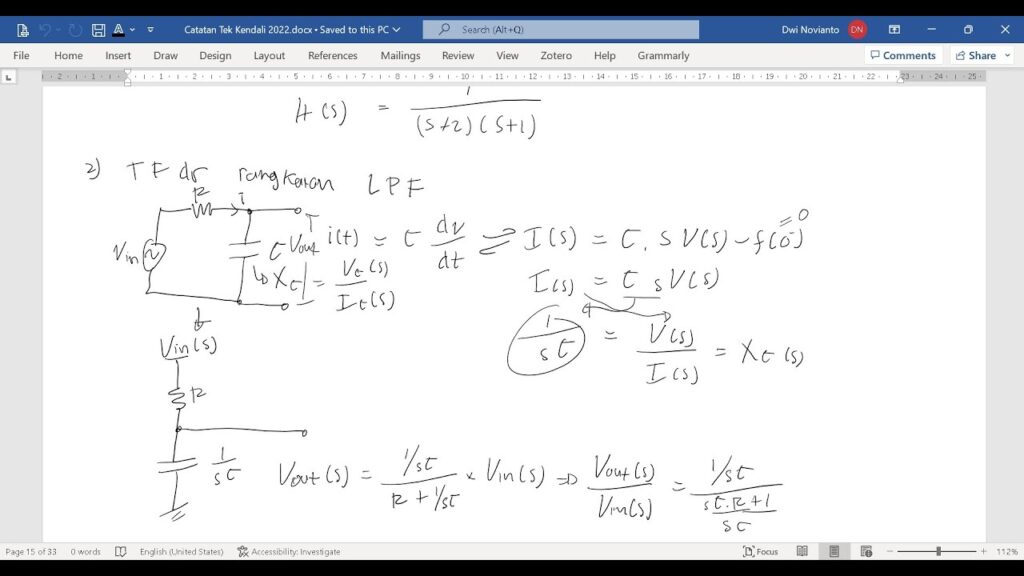 Catatan Tek Kendali 2022.docx • Saved to this PC
Search (Alt+Q)
Dwi Novianto DN
File Home Insert Draw Design Layout References Mailings Review View Zotero Help Grammarly Comments Share
2 1 1 2 3 4 5 6 7 8 9 10 11 12 13 14 15 16 17 18 19 20 21 22 23 24 25
H(s) = 1 / (s+2)(s+1)
2) TF dr rangkaian LPF
R I
Vin C Vout
i(t) = C dv/dt ⇌ I(s) = C. s V(s) - f(0-) = 0
↳ Xc = Vc(s)/Ic(s)
I(s) = C s V(s)
1/sC = V(s)/I(s) = Xc(s)
Vin(s)
R
1/sC
Vout(s) = 1/sC / R + 1/sC × Vin(s) ⇒ Vout(s)/Vin(s) = 1/sC / sC.R+1/sC
Page 15 of 33 0 words English (United States) Accessibility: Investigate Focus 112%